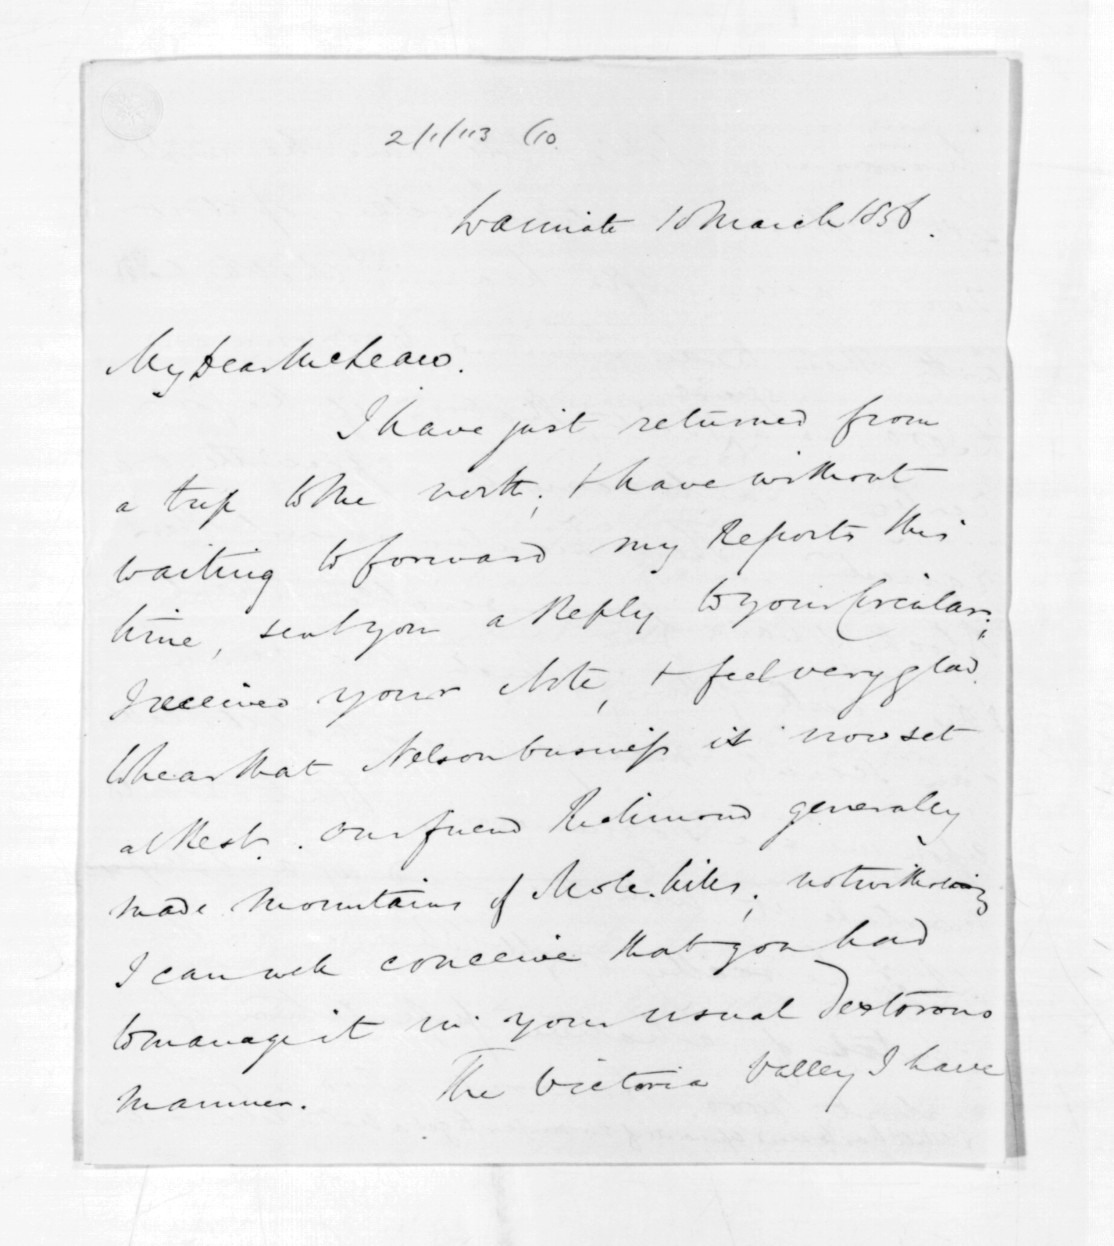 Waimate 10 March 1856.
My Dear McLean.
I have just returned from
a trip to the north; & have without
waiting to forward my Reports this
time, sent you a Reply to your Circular;
I received your Note, & feel very glad
to hear that Nelson business is now set
at Rest. Our friend Richmond generally
made mountains of Mole hills,
I can well conceive that you had
to manage it in your usual dextorous
manner. The Victoria Valley I have